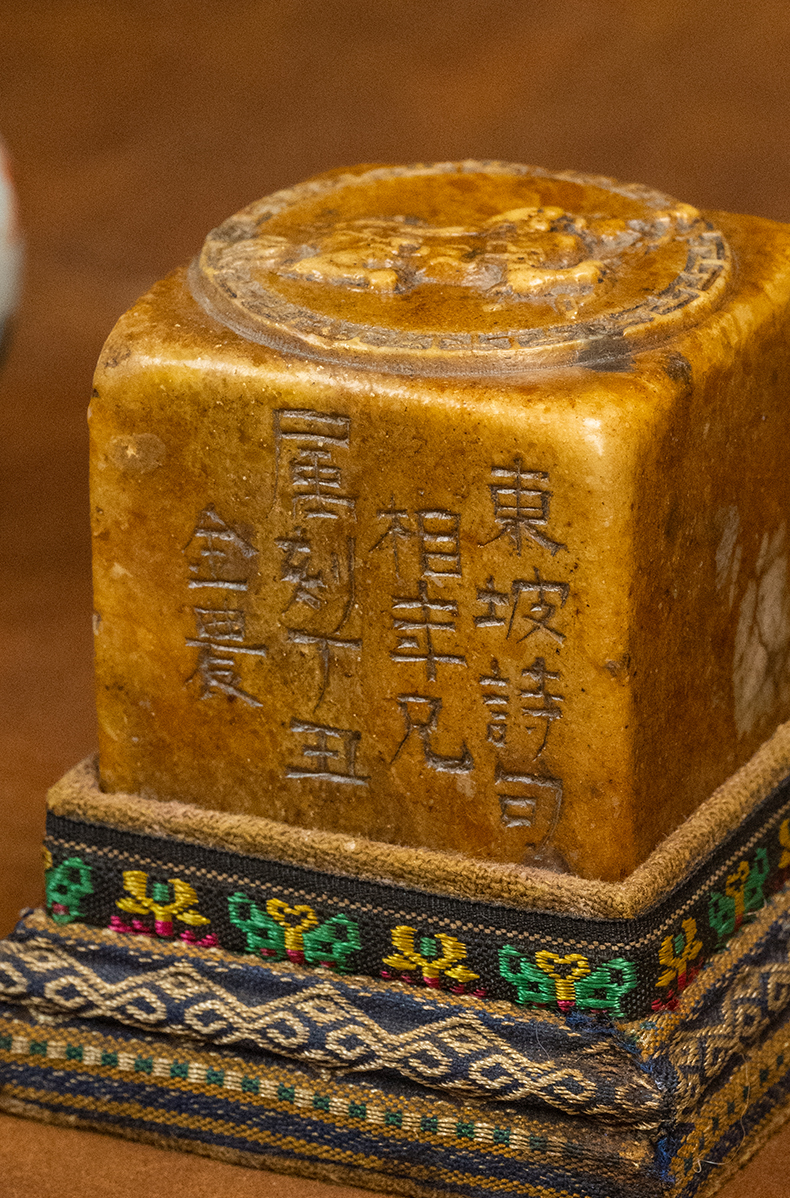 東坡詩句
相年兄
屬刻丁丑
金農